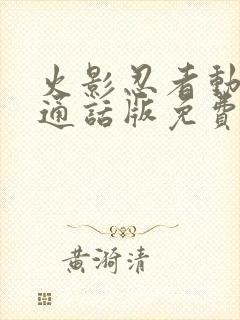 火影忍者動
通話版免費
黃漪清